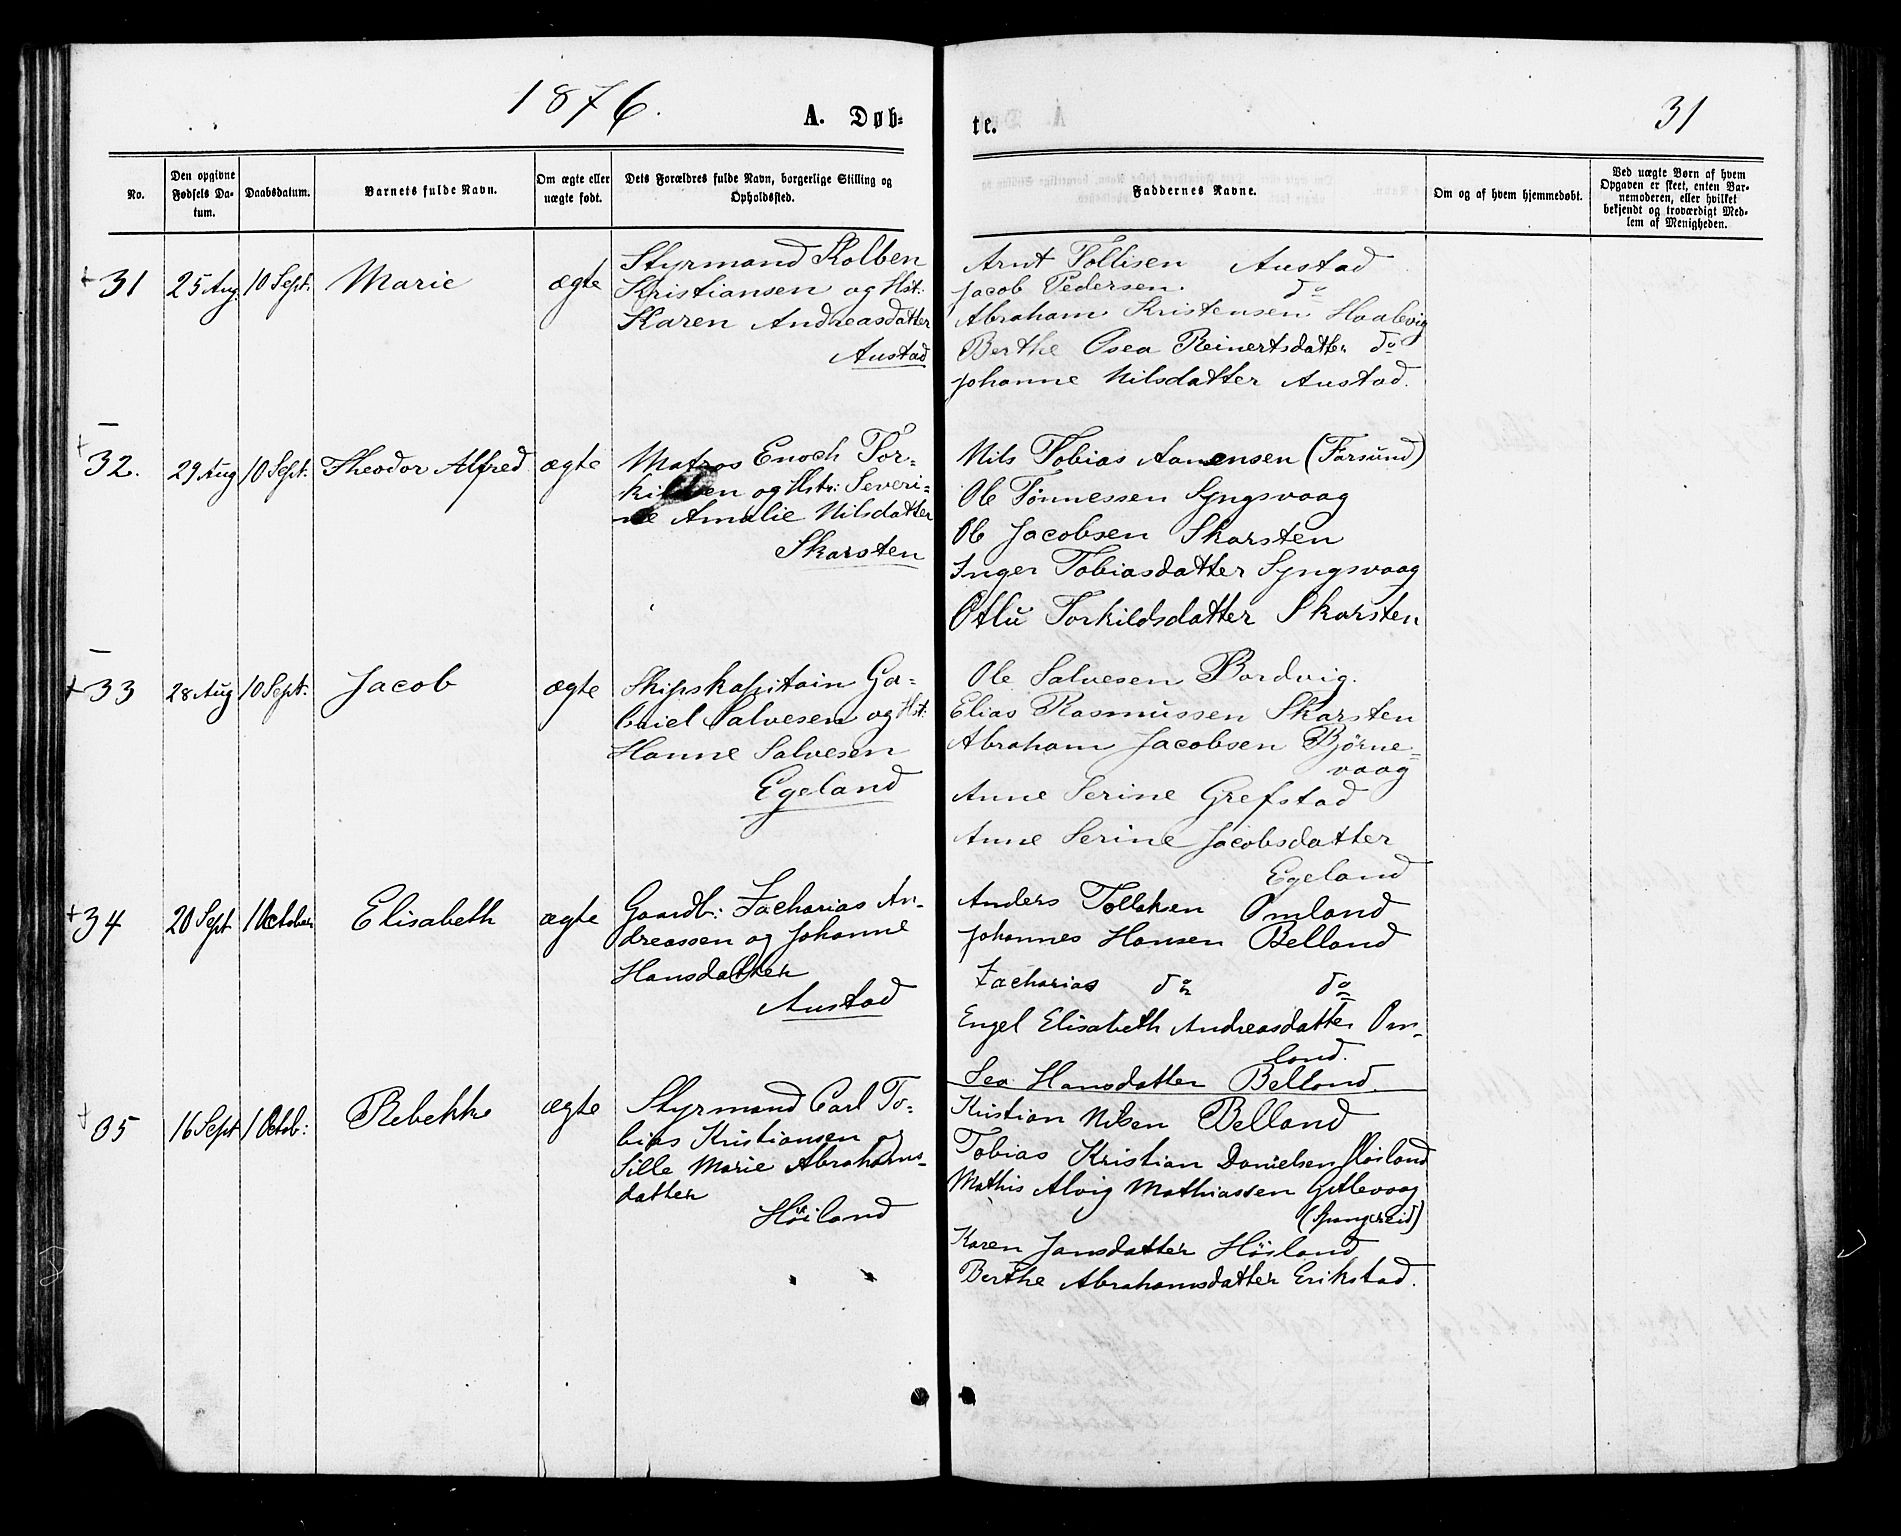 1876.
A. Døb-
te.
31
No.
Den opgivne Fødsels Da-tum.
Daabsdatum.
Barnets fulde Navn.
Om ægte eller uægte født.
Dets Forældres fulde Navn, borgerlige Stilling og Opholdssted.
Faddernes Navne.
Om og af hvem hjemmedøbt.
Ved uægte Børn af hvem Opgaven er skeet, enten Bar-nemoderen, eller hvilket bekjendt og troværdigt Med-lem af Menigheden.
+ 31 25 Aug. 10 Sept: Marie ægte
Styrmand Kolben
Kristiansen og Hst:
Karen Andreasdatter
Austad
Arnt Tollisen Austad
Jacob Pedersen. do
Abraham Kristensen Haalevig
Berthe Osea Reinertsdatter do
Johanne Nilsdatter Austad.
+ 32. 29 Aug 10 Sept: Theodor Alfred ægte
Matros Enoch Tor=
kildsen og Hstr: Severi=
ne Amalie Nilsdatter
Skarsten
Nils Tobias Aanensen (Farsund)
Ole Tønnessen Syngsvaag
Ole Jacobsen Skarsten
Inger Tobiasdatter Syngsvaag
Torkildsdatter Skarsten
+ 33 28 Aug 10 Sept: Jacob ægte
Skipskapitain Ga=
briel Salvesen og Hst:
Hanne Salvesen
Egeland
Ole Salvesen Bordvig.
Elias Rasmussen Skarsten
Abraham Jacobsen Bjørne=
vaag
Anne Serine Grefstad
Anne Serine Jacobsdatter
Egeland
+ 34 20 Sept 1 October Elisabeth ægte
Gaardb: Zacharias An-
dreassen og Johanne
Hansdatter
Austad
Anders Tollaksen Omland
Johannes Hansen Belland
Zacharias do do
Engel Elisabeth Andreasdatter Om-
land.
Sea Hansdatter Belland.
+ 35 16 Sept 1 Octob: Rebekke ægte
Styrmand Carl To-
bias Kristiansen og
Sille Marie Abrahams-
datter
Höiland
Kristian Nilsen Belland
Tobias Kristian Danielsen Höiland
Mathis Alvig Mathiassen Gitlevaag
(Spangereid)
Karen Jansdatter Höiland
Berthe Abrahamsdatter Erikstad.